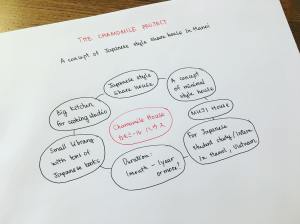 THE CHAMOMILE PROJECT
A concept of Japanese style share house in Hanoi
Japanese style
share house
A concept
of minimal
style house
MUJI HOUSE
For Japanese
student study/intern
in Hanoi, Vietnam
Duration:
1 month - 1 year
or more!
Small library
with tons of
Japanese books
Big kitchen
for cooking studio
Chamomile House
カモミール ハウス